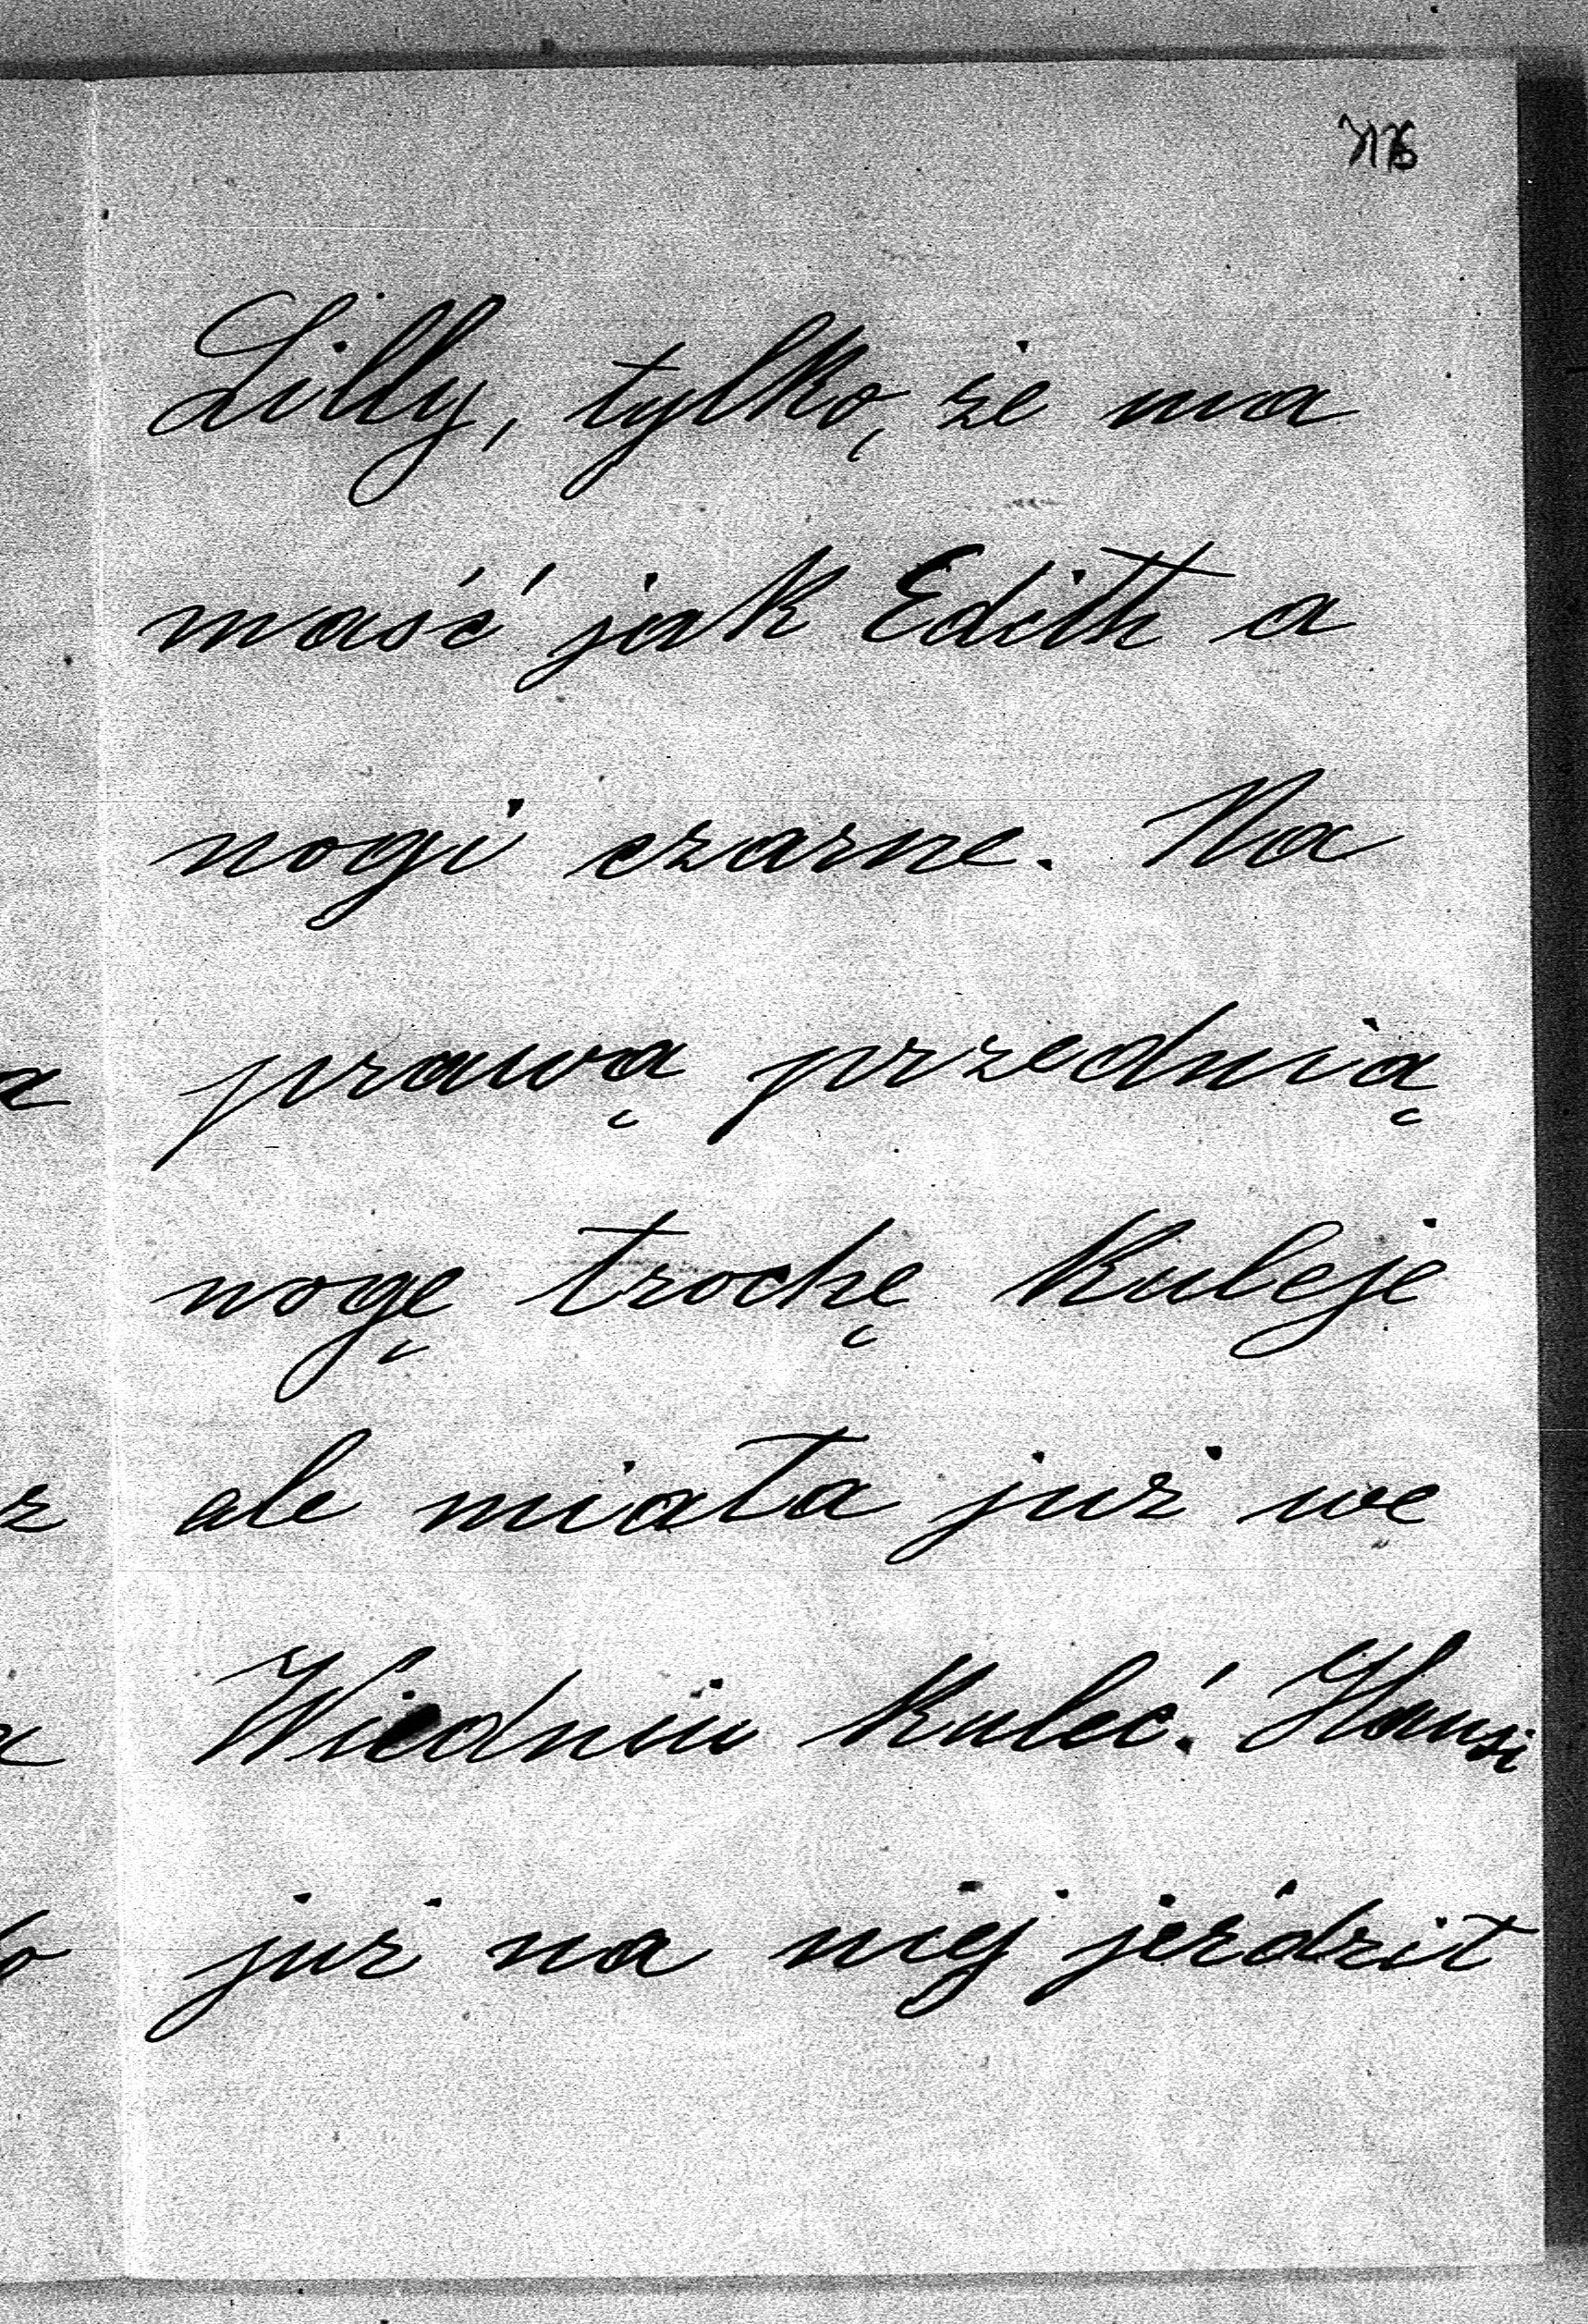 Lilly, tylko, że ma
maść jak Edith a
nogi czarne. Na
prawą przednią
nogę trochę kuleje
ale miała już we
Wiedniu kuleć. Hansi
już na niej jeździł